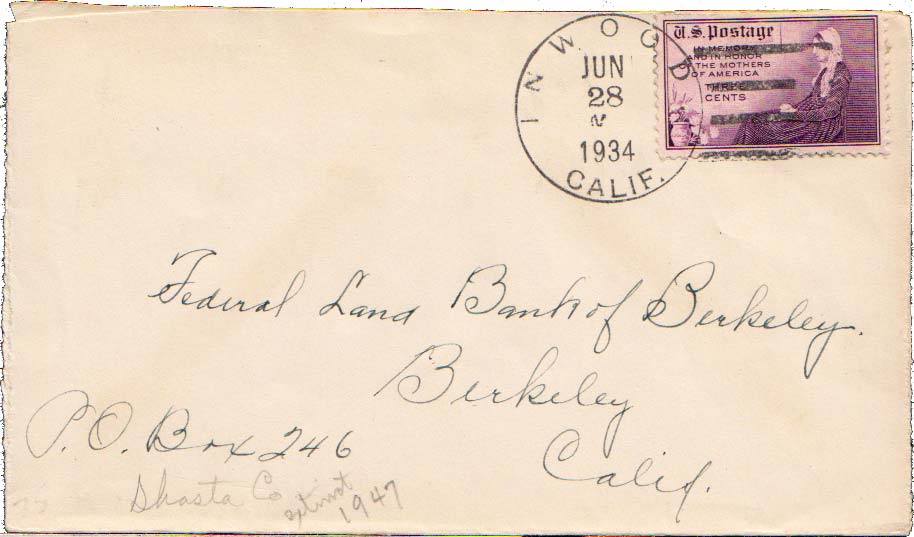 INWOOD
JUN
28
1934
CALIF.
U.S. Postage
IN MEMORY
AND IN HONOR
OF THE MOTHERS
OF AMERICA
THREE
CENTS
Federal Land Bank of Berkeley.
Berkeley
Calif.
P.O. Box 246
Shasta Co
extinct
1947